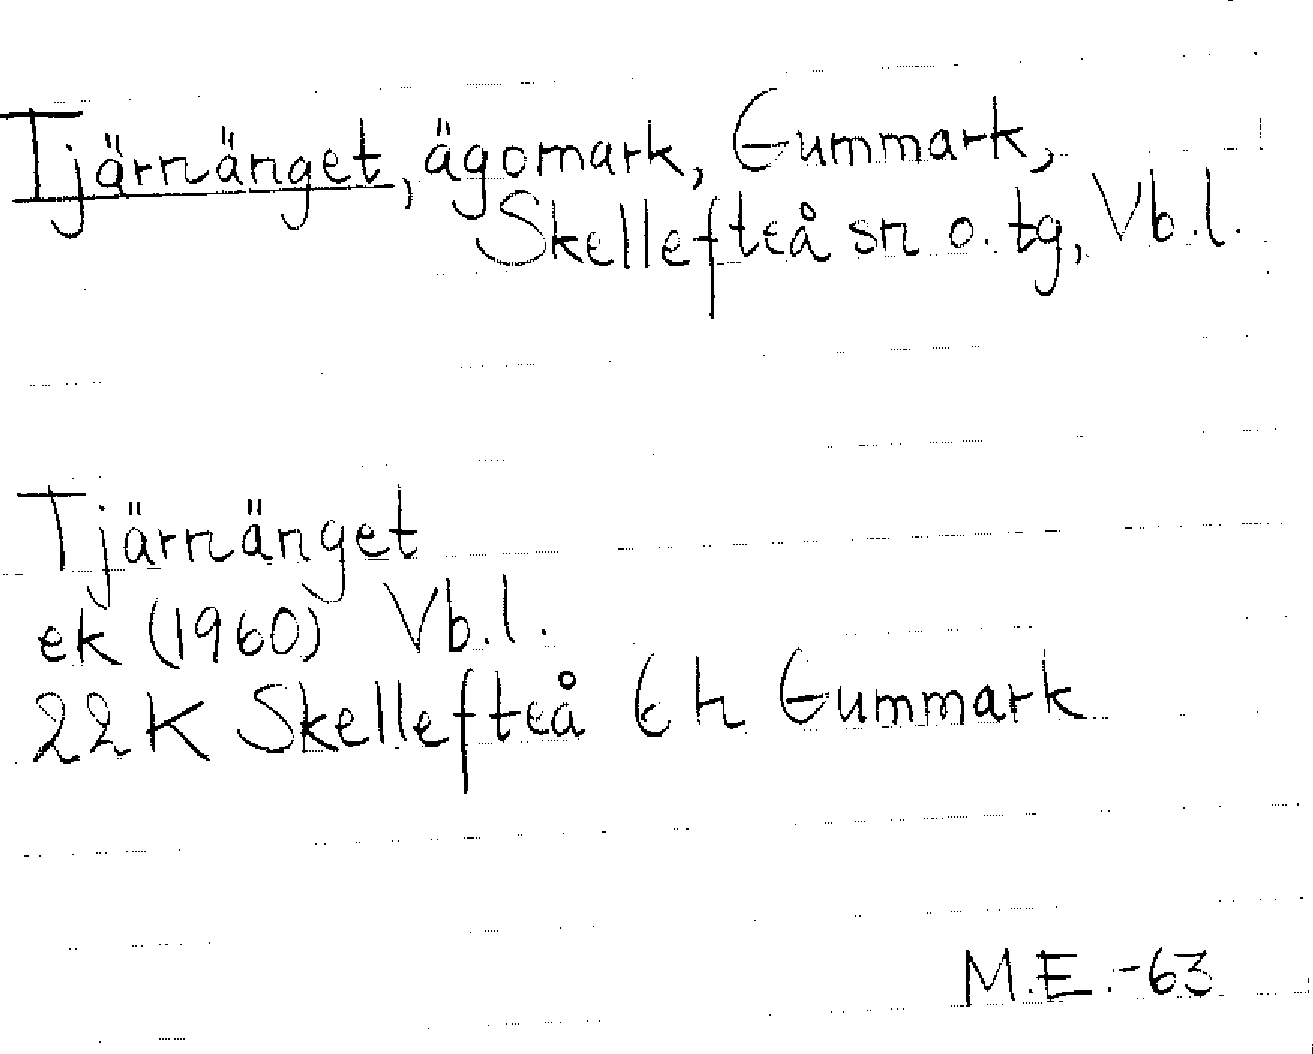 Tjärnänget, ägomark, Gummark,
Skellefteå sn o. tg, Vb.l.
Tjärnänget
ek (1960) Vb.l.
22K Skellefteå 6h Gummark
M.E.-63